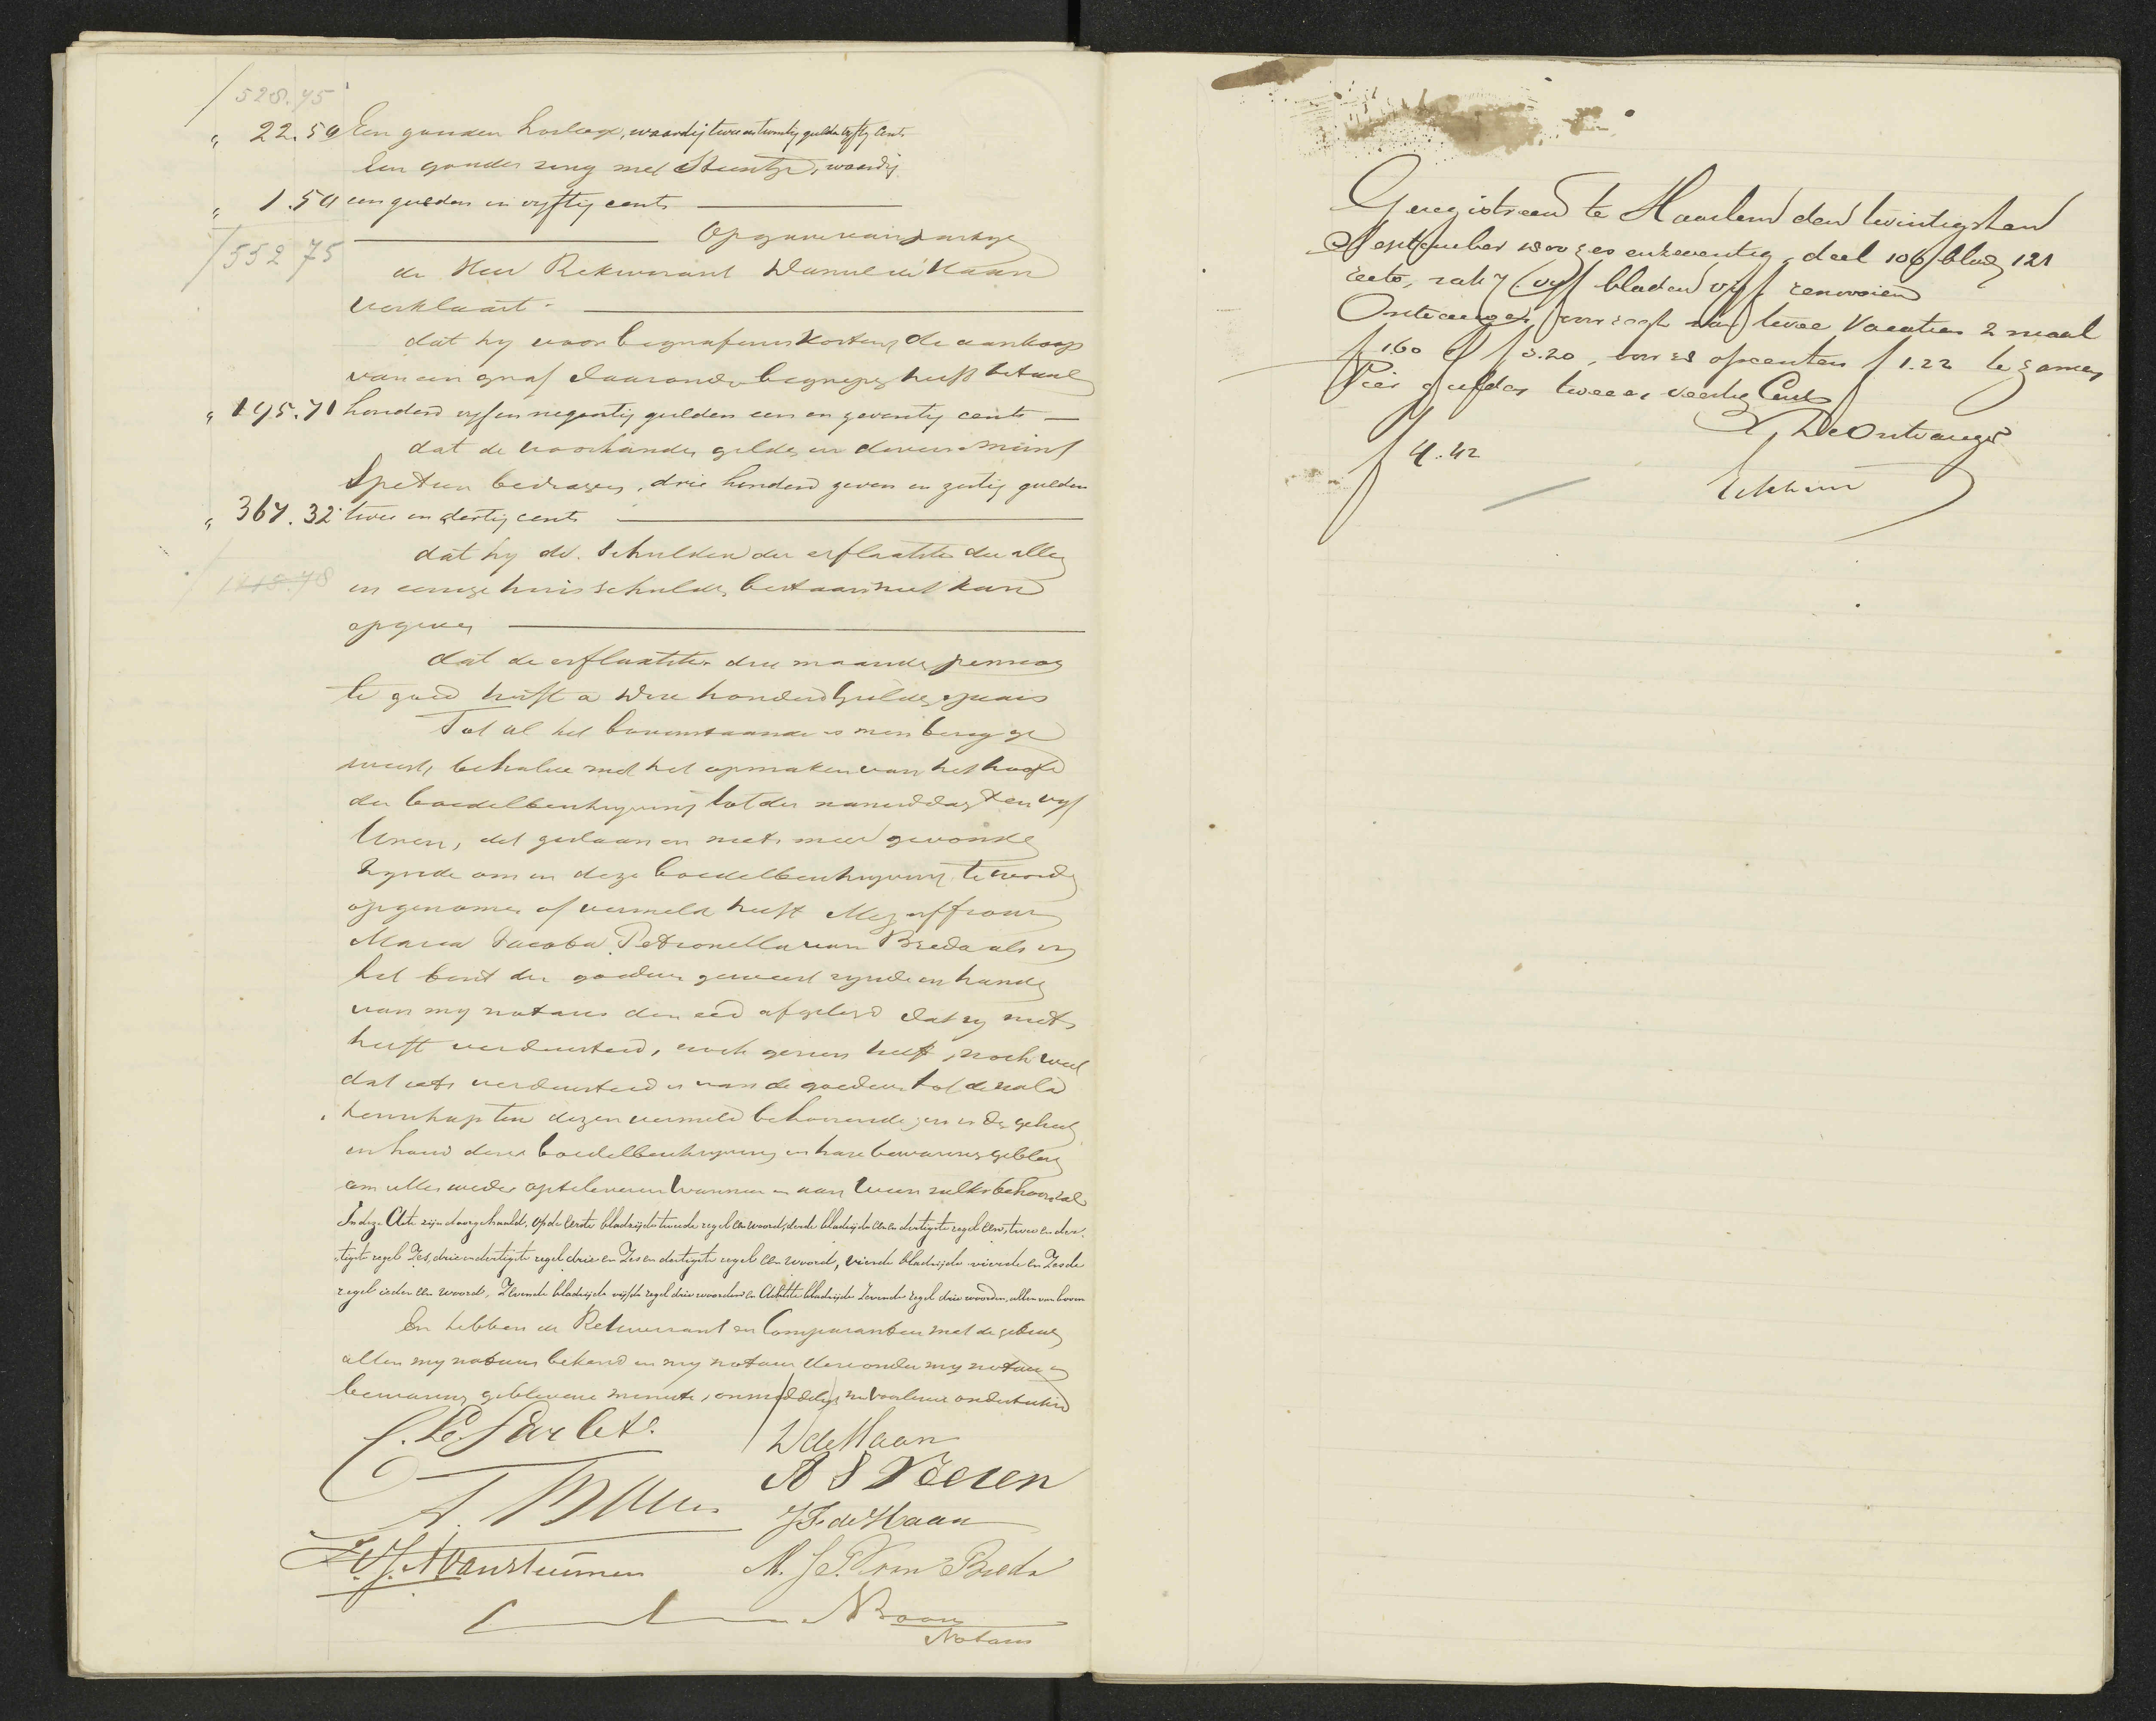 528.75
" 22.50 Een gouden horloge, waardij twee en twintig gulden vyftig Cents
Een gouden ring met Steentje, waardij
" 1.50 een gulden en vyftig cents
552 75
Opgaven van
de Heer Rekwirant Daniel de Haan
verklaart:
dat hy voor begrafeniskosten, de aankoop
van een graf daaronder begrepen heeft betaald
" 195.71 honderd vyf en negentig gulden een en zeventig cents
dat de voorhanden gelden in diverse munt
Speciën bedragen, drie honderd zeven en zestig gulden
" 367.32 twee en dertig cents
dat hy de schulden der erflaatster die alleen
in eenige huisschulden bestaan niet kan
opgeven
dat de erflaatster drie maanden pensioen
te goed heeft a drie honderd gulden 's jaars
Tot al het bovenstaande is men bezig ge
weest, behalve met het opmaken van het hoofd
der boedelbeschryving tot des namiddags ten vyf
Uren, dit gedaan en niets meer gevonden
zynde om in deze boedelbeschryving te worden
opgenomen of vermeld heeft Mejuffrouw
Maria Jacoba Petronella van Breda als in
het bezit der goederen geweest zynde in handen
van my notaris den eed afgelegd dat zy niets
heeft verduisterd, noch gezien heeft, noch weet
dat iets verduisterd is van de goederen tot de nala
tenschap ten dezen vermeld behoorende, en is de geheele
inhoud dezer boedelbeschryving in hare bewaring gebleven
om alles weder opteleveren wanneer en aan wien zulks behooren zal
In deze Acte zijn doorgehaald, op de eerste bladzijde tweede regel een woord, derde bladzijde een en dertigste regel een, twee en der-
tigste regel Zes, drie en dertigste regel drie en Zes en dertigste regel een woord, vierde bladzijde vierde en Zesde
regel ieder een woord, Zevende bladzijde vijfde regel drie woorden en Achtste bladzijde Zevende regel drie woorden, allen van boven
En hebben de Rekwirant en Comparanten met de getuigen
allen my notaris bekend en my notaris deze onder my notaris in
bewaring geblevene minute, onmiddelyk na voorlezing onderteekend
D de Haan
J F de Haan
M. J. P. van Breda
Notaris
Geregistreerd te Haarlem den twintigsten
September 1800 zes en zeventig, deel 106 blad 121
recto, vak 7 (vyf bladen vyf renvooien
Ontvangen voor regt van twee Vacatien 2 maal
f 1.60 of f 3.20, voor 38 opcenten f 1.22 te zamen
Vier gulden twee en veertig Cents
De Ontvanger
f 4.42